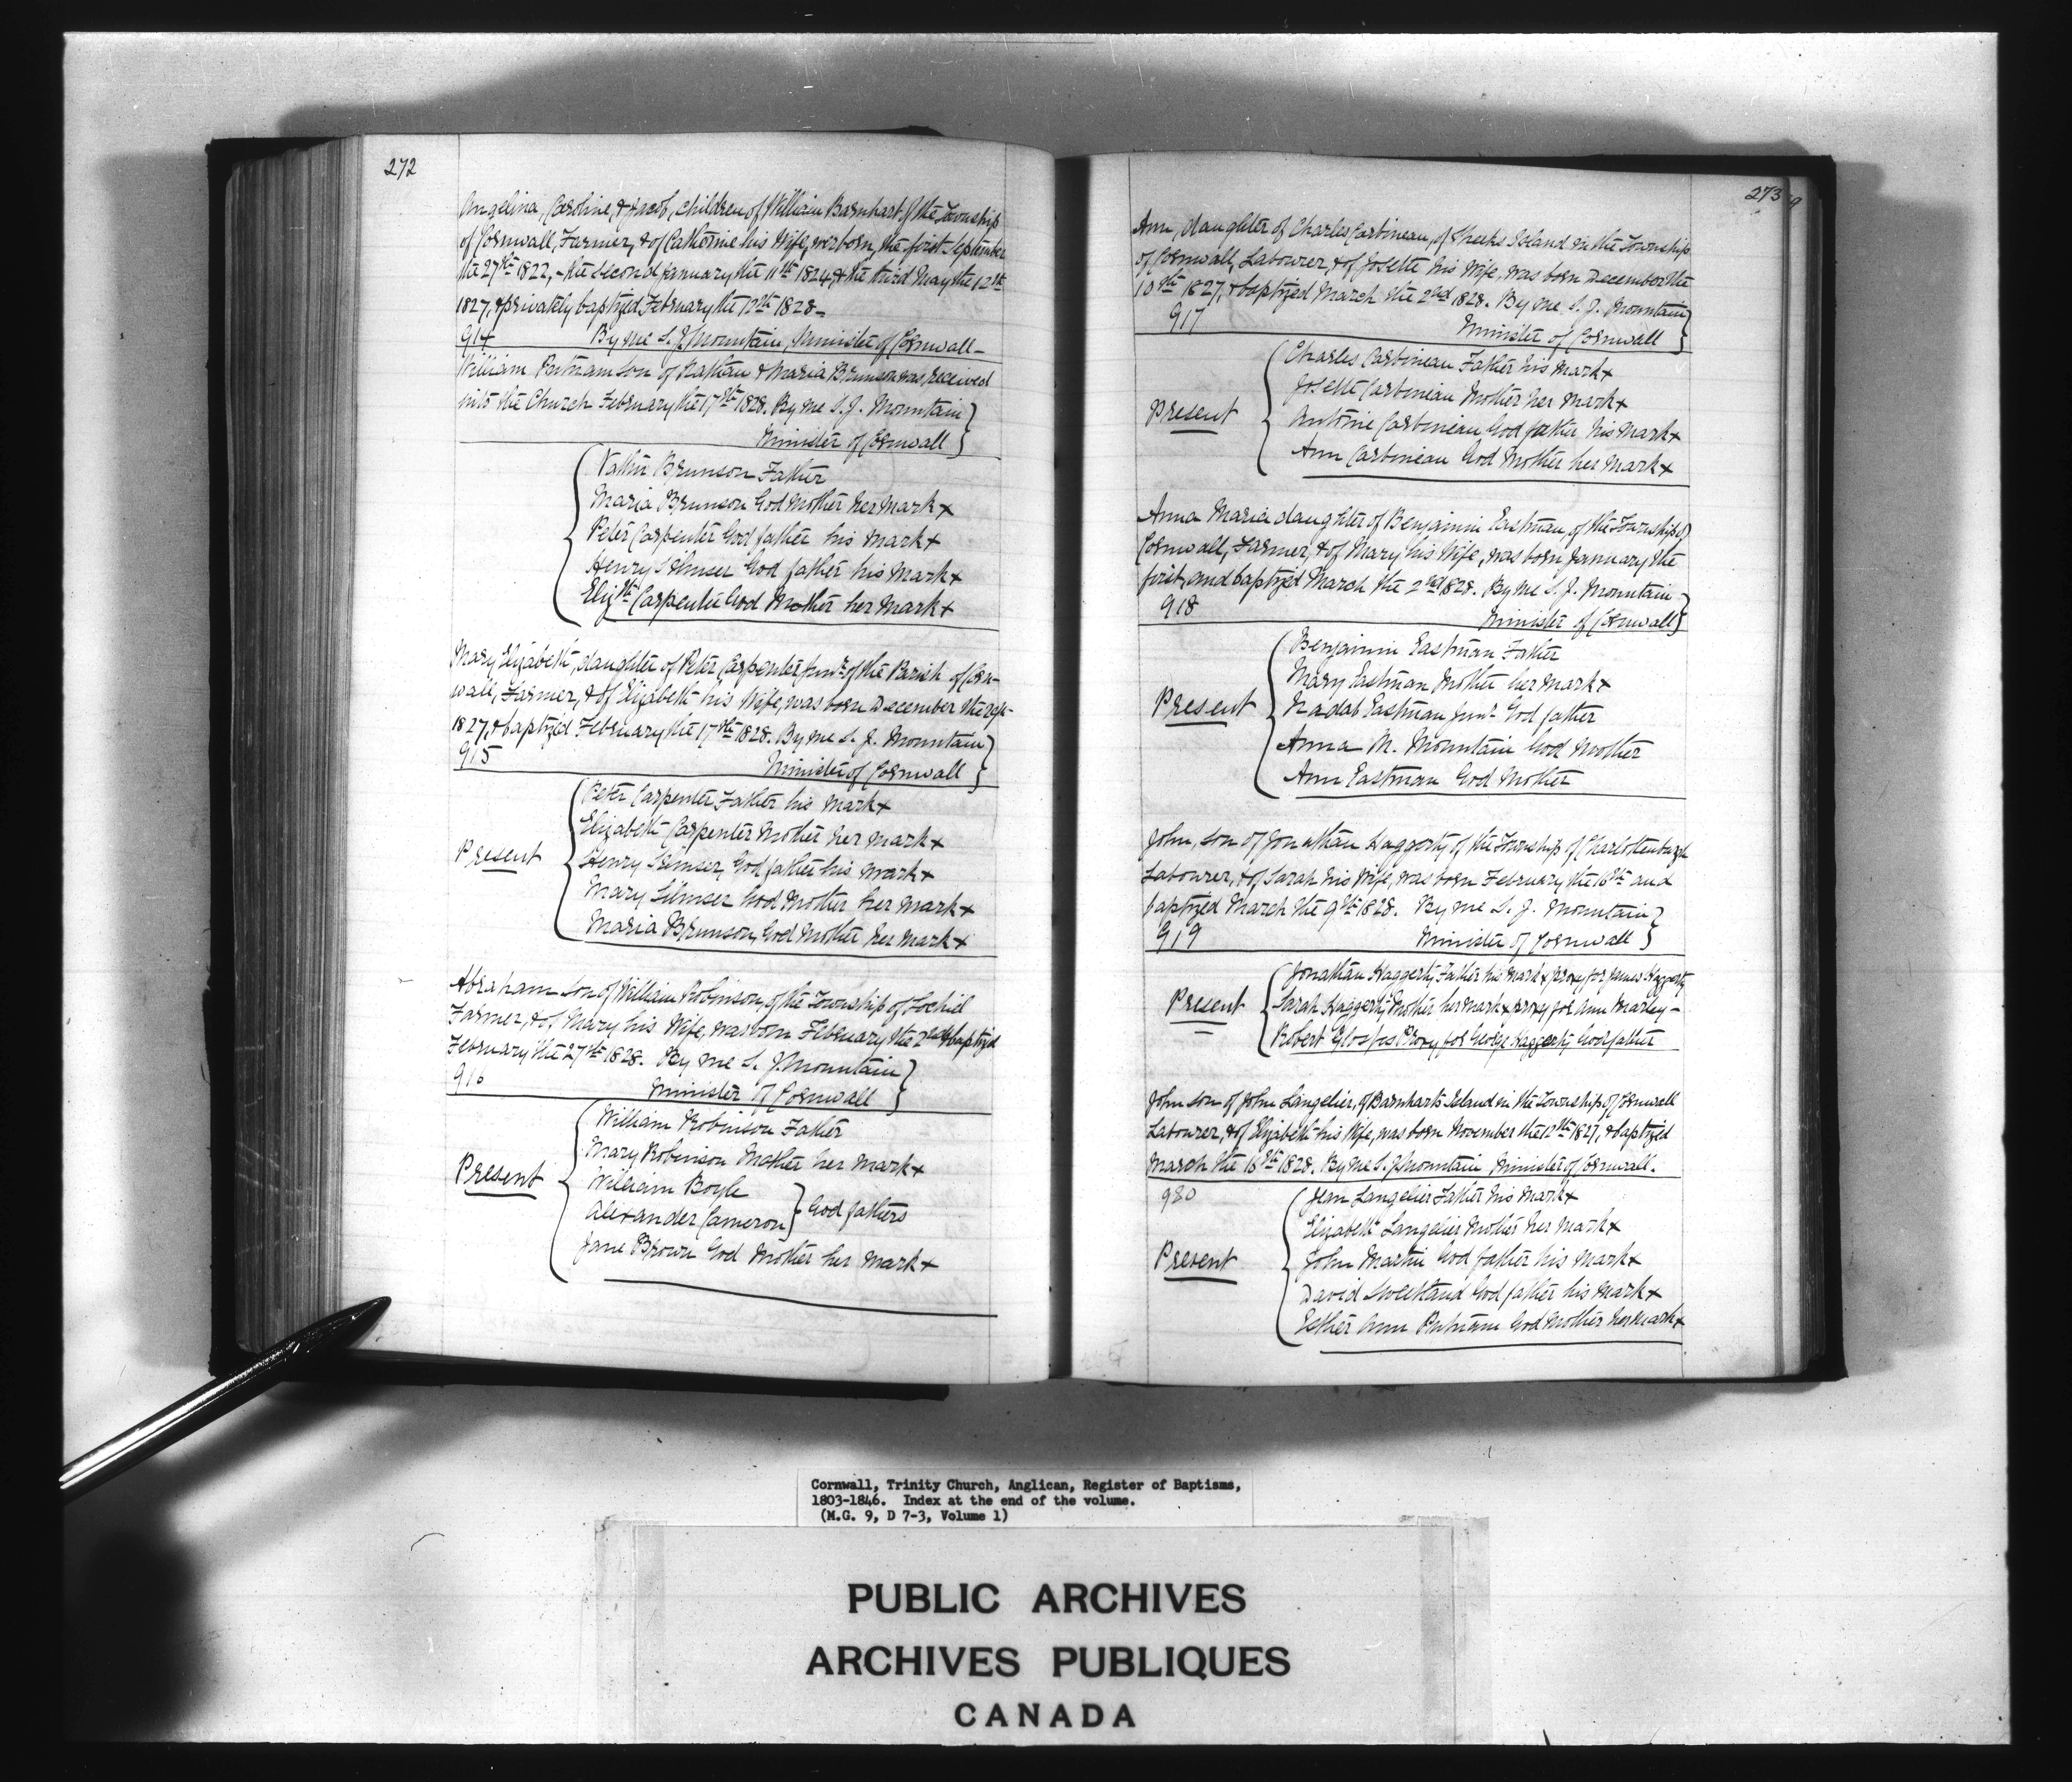 272
Angelina, Caroline, & Jacob, children of William Barnhart of the Township
of Cornwall, Farmer, & of Catherine his Wife, were born, the first September
the 27th 1822, - the second January the 11th 1824, & the third May the 12th
1827, & privately baptized February the 12th 1828 -
914 By me S. J. Mountain, Minister of Cornwall -
William Putnam son of Nathan & Maria Brunson was received
into the Church February the 17th 1828. By me S. J. Mountain }
Minister of Cornwall
Nathn Brunson Father
Maria Brunson God Mother her mark x
Peter Carpenter God father his mark x
Henry Silmser God father his mark x
Elizth Carpenter God Mother her mark x
Mary Elizabeth, daughter of Peter Carpenter Junr of the Parish of Corn-
wall, Farmer, & of Elizabeth his Wife, was born December the
1827, & baptized February the 17th 1828. By me S. J. Mountain }
915 Minister of Cornwall
Peter Carpenter Father his mark x
Elizabeth Carpenter Mother her mark x
Present Henry Silmser, God father his mark x
Mary Silmser God Mother her mark x
Maria Brunson, God Mother her mark x
Abraham son of William Robinson, of the Township of Lochiel
Farmer, & of Mary his Wife, was born February the 2nd & baptized
February the 27th 1828. By me S. J. Mountain }
916 Minister of Cornwall
William Robinson Father
Mary Robinson Mother her mark x
Present William Boyle
Alexander Cameron } God fathers
Jane Brown God Mother her mark x
273
Ann, daughter of Charles Carbineau, of Sheeks Island in the Township
of Cornwall, Labourer, & of Josette his Wife, was born December the
10th 1827, & baptized March the 2nd 1828. By me S. J. Mountain }
917 Minister of Cornwall
Charles Carbineau Father his mark x
Josette Carbineau Mother her mark x
Present Antoine Carbineau God father his mark x
Ann Carbineau God Mother her mark x
Anna Maria daughter of Benjamin Eastman, of the Township of
Cornwall, Farmer, & of Mary his Wife, was born January the
first, and baptized March the 2nd 1828. By me S. J. Mountain }
918 Minister of Cornwall
Benjamin Eastman Father
Mary Eastman Mother her mark x
Present Nadab Eastman Junr God father
Anna M. Mountain God Mother
Ann Eastman God Mother
John, son of Jonathan Haggerty of the Township of Charlottenburgh
Labourer, & of Sarah his Wife, was born February the 16th and
baptized March the 9th 1828. By me S. J. Mountain }
919 Minister of Cornwall
Jonathan Haggerty Father his mark x proxy for James Haggerty
Present Sarah Haggerty Mother her mark x proxy for Ann Marley -
Robert Proxy for George Haggerty God father
John son of John Langelier, of Barnharts Island in the Township of Cornwall
Labourer, & of Elizabeth his Wife, was born November the 12th 1827, & baptized
March the 16th 1828. By me S. J. Mountain Minister of Cornwall.
980 Jean Langelier Father his mark x
Elizabeth Langelier Mother her mark x
Present John Martin God father his mark x
David Sweetland God father his mark x
Esther Ann Putnam God Mother her mark x
Cornwall, Trinity Church, Anglican, Register of Baptisms,
1803-1846. Index at the end of the volume.
(M.G. 9, D 7-3, Volume 1)
PUBLIC ARCHIVES
ARCHIVES PUBLIQUES
CANADA